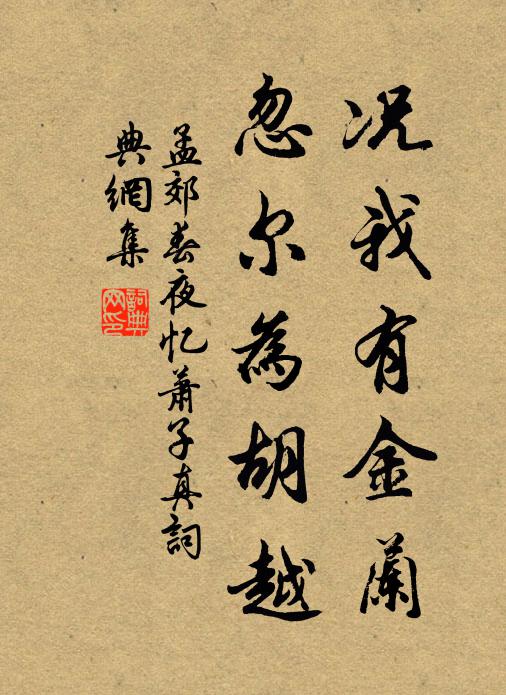 况我有金蘭
忽尔為胡越
孟郊春夜忆蕭子真詞
典網集
詞典網印